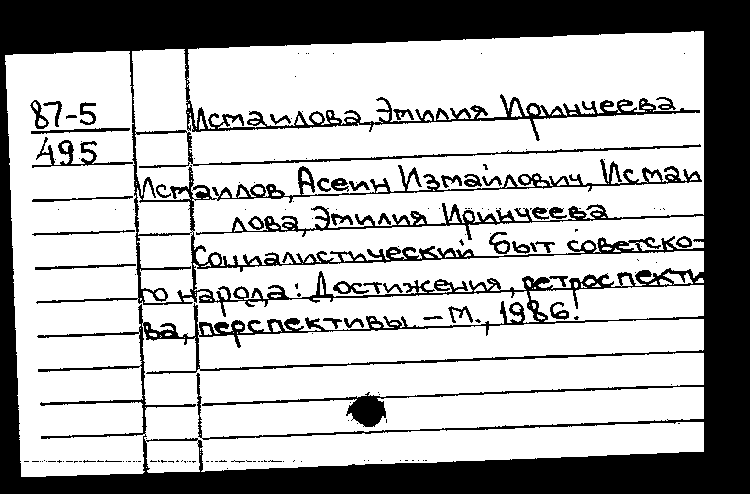 87-5 Исмаилова, Эмилия Иринчеева.
495
Исмаилов, Асеин Измайлович, Исмаи
лова, Эмилия Иринчеева
Социалистический быт советско-
го народа: Достижения, ретроспекти
ва, перспективы. – М., 1986.